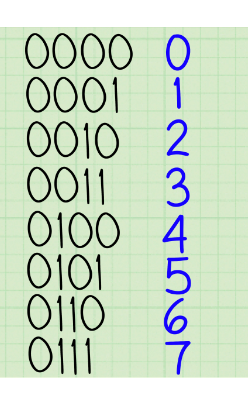 0000 0
0001 1
0010 2
0011 3
0100 4
0101 5
0110 6
0111 7